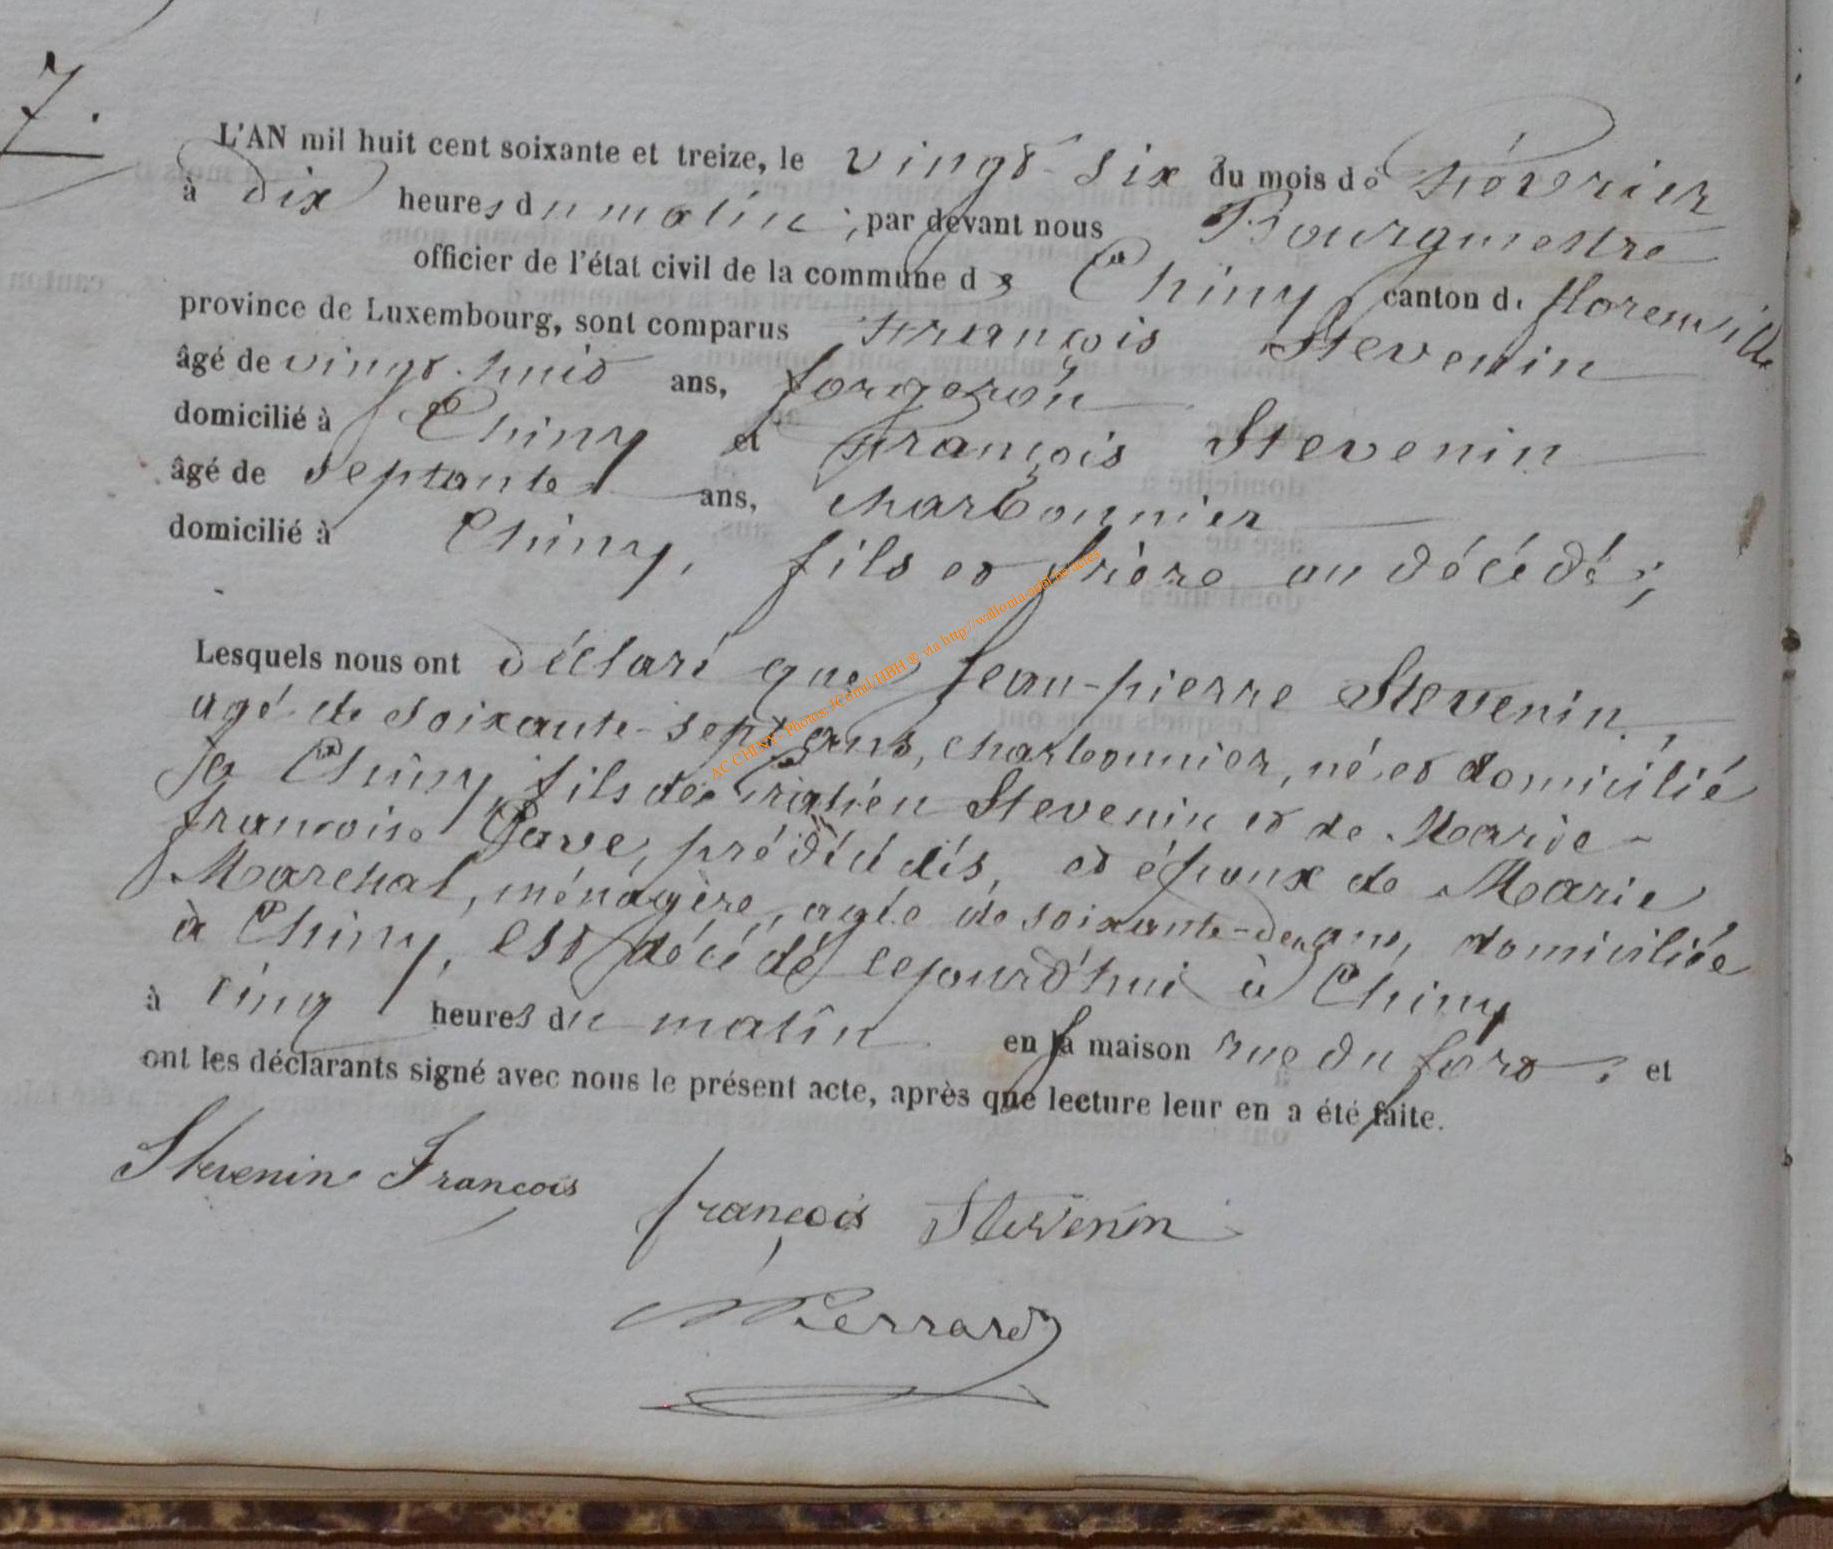 7.
L'AN mil huit cent soixante et treize, le vingt-six du mois de février
à dix heures du matin, par devant nous Bourgmestre
officier de l'état civil de la commune de Chiny, canton de florenville
province de Luxembourg, sont comparus François Stevenin
âgé de vingt-huit ans, forgeron
domicilié à Chiny et François Stevenin
âgé de septante ans, charbonnier
domicilié à Chiny, fils et frère au décédé;
Lesquels nous ont déclaré que Jean-pierre Stevenin,
agé de soixante-sept ans, charbonnier, né et domicilié
à Chiny, fils de Stevenin et de Marie-
francoise prédécédés, et époux de Marie
Marchal, ménagère, agée de soixante-deux ans, domiciliée
à Chiny, est décédé cejourd'hui à Chiny
à cinq heures du matin en sa maison rue du fort, et
ont les déclarants signé avec nous le présent acte, après que lecture leur en a été faite.
Stevenin François françois Stevenin
Perrard
AC CHINY - Photos: JComil, HBH © via http://wallonia-archives